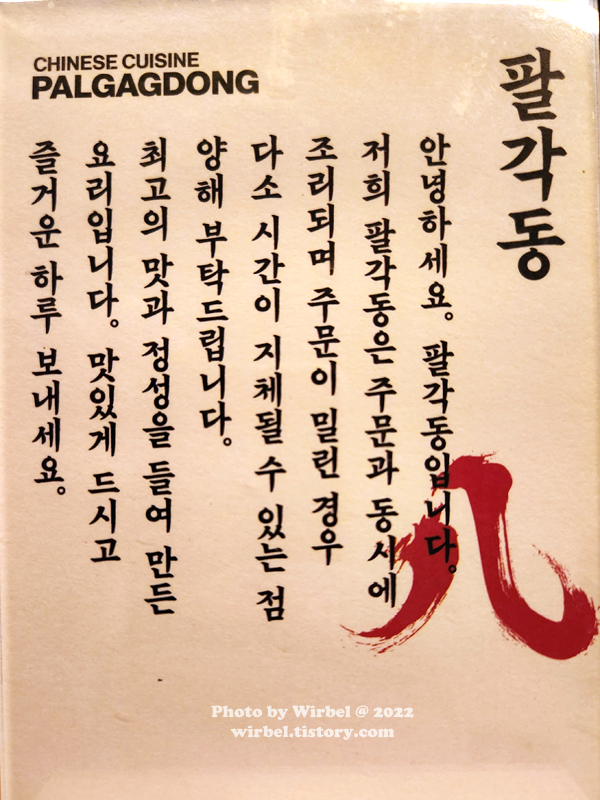 CHINESE CUISINE
PALGAGDONG
팔각동
안녕하세요. 팔각동입니다.
저희 팔각동은 주문과 동시에
조리되며 주문이 밀린 경우
다소 시간이 지체될 수 있는 점
양해 부탁드립니다.
최고의 맛과 정성을 들여 만든
요리입니다. 맛있게 드시고
즐거운 하루 보내세요.
八
Photo by Wirbel @ 2022
wirbel.tistory.com